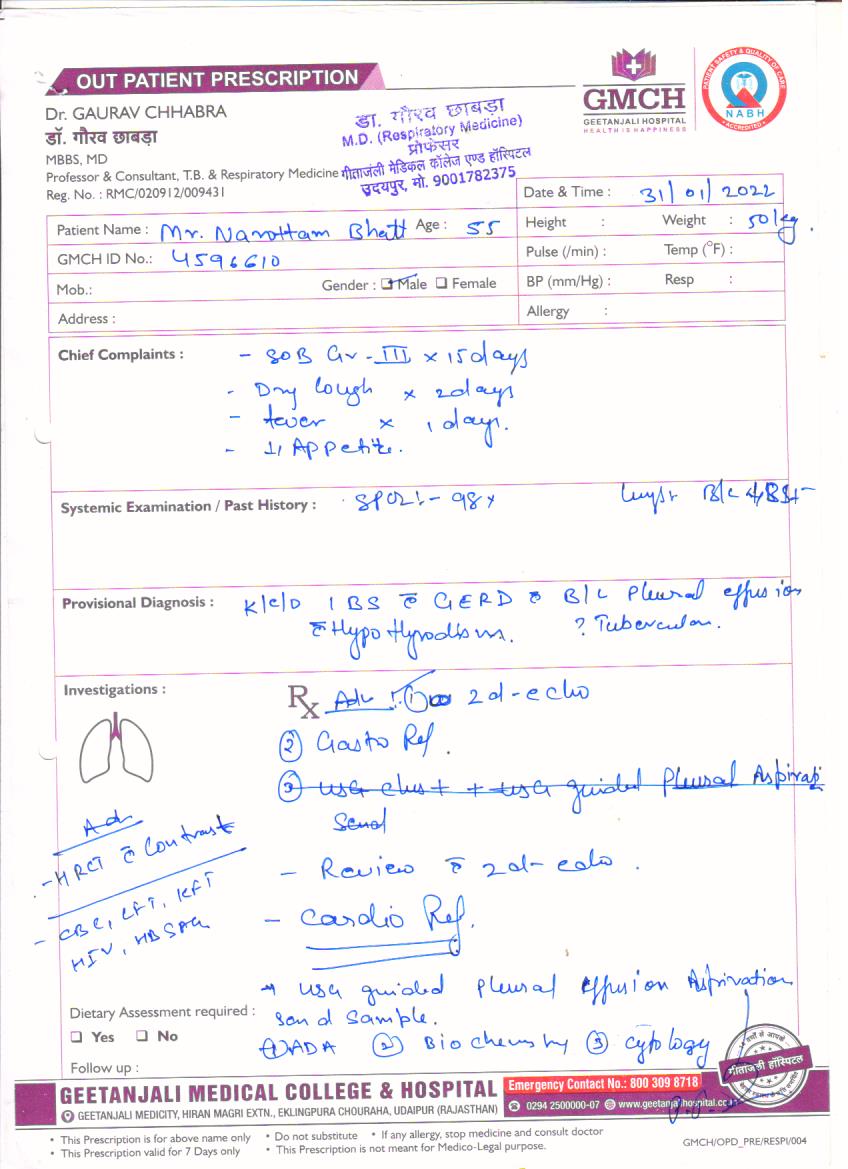 OUT PATIENT PRESCRIPTION
Dr. GAURAV CHHABRA
डॉ. गौरव छाबड़ा
MBBS, MD
Professor & Consultant, T.B. & Respiratory Medicine
Reg. No. : RMC/020912/009431
डा. गौरव छाबड़ा
M.D. (Respiratory Medicine)
प्रोफेसर
गीताजंली मेडिकल कॉलेज एण्ड हॉस्पिटल
उदयपुर, मो. 9001782375
GMCH
GEETANJALI HOSPITAL
HEALTH IS HAPPINESS
PATIENT SAFETY & QUALITY OF CARE
NABH
ACCREDITED
Date & Time : 31/01/2022
Patient Name : Mr. Narottam Bhatt Age : 55
Height : Weight : 50 kg.
GMCH ID No.: 4596610
Pulse (/min) : Temp (°F) :
Mob.: Gender : Male Female
BP (mm/Hg) : Resp :
Address :
Allergy :
Chief Complaints : - SOB Gr-III x 15 days
- Dry Cough x 2 days
- fever x 1 days.
- ↓ Appetite.
Systemic Examination / Past History : SPO2:- 98%
B/L
Provisional Diagnosis : K/C/O IBS c̄ GERD c̄ B/L Pleural effusion
c̄ Hypothyrodism. ? Tubercular.
Investigations :
Rx Adv: ① 2d-echo
② Gastro Ref.
③ USG chest + USG guided Pleural Aspirati
Send
Adv
- HRCT c̄ Contrast
- CBC, LFT, KFT
HIV, HBSAG
- Review c̄ 2d-echo.
- Cardio Ref.
→ USG guided Pleural effusion Aspirvation
send sample.
① ADA ② Biochemistry ③ cytology
Dietary Assessment required :
Yes No
Follow up :
गीतांजली हॉस्पिटल
GEETANJALI MEDICAL COLLEGE & HOSPITAL
GEETANJALI MEDICITY, HIRAN MAGRI EXTN., EKLINGPURA CHOURAHA, UDAIPUR (RAJASTHAN)
Emergency Contact No.: 800 309 8718
0294 2500000-07 www.geetanjalihospital.co.in
• This Prescription is for above name only • Do not substitute • If any allergy, stop medicine and consult doctor
• This Prescription valid for 7 Days only • This Prescription is not meant for Medico-Legal purpose.
GMCH/OPD_PRE/RESPI/004